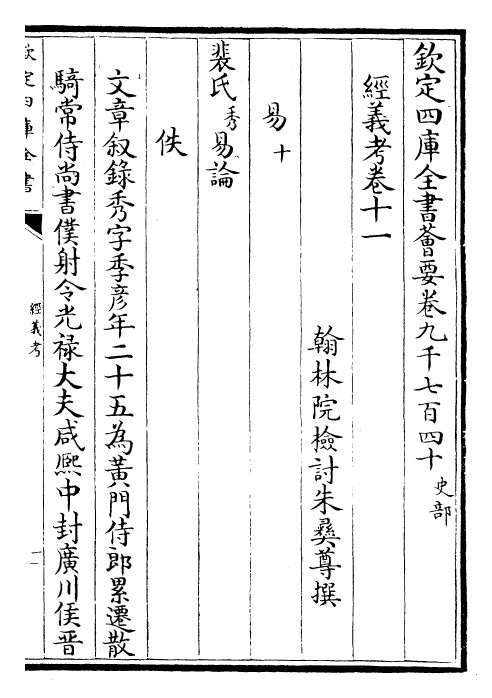 欽定四庫全書薈要卷九千七百四十 史部
經義考卷十一
翰林院檢討朱彝尊撰
易十
裴氏秀易論
佚
文章叙錄秀字季彦年二十五為黃門侍郎累遷散
騎常侍尚書僕射令光祿大夫咸熙中封廣川侯晉
欽定四庫全書
經義考
一